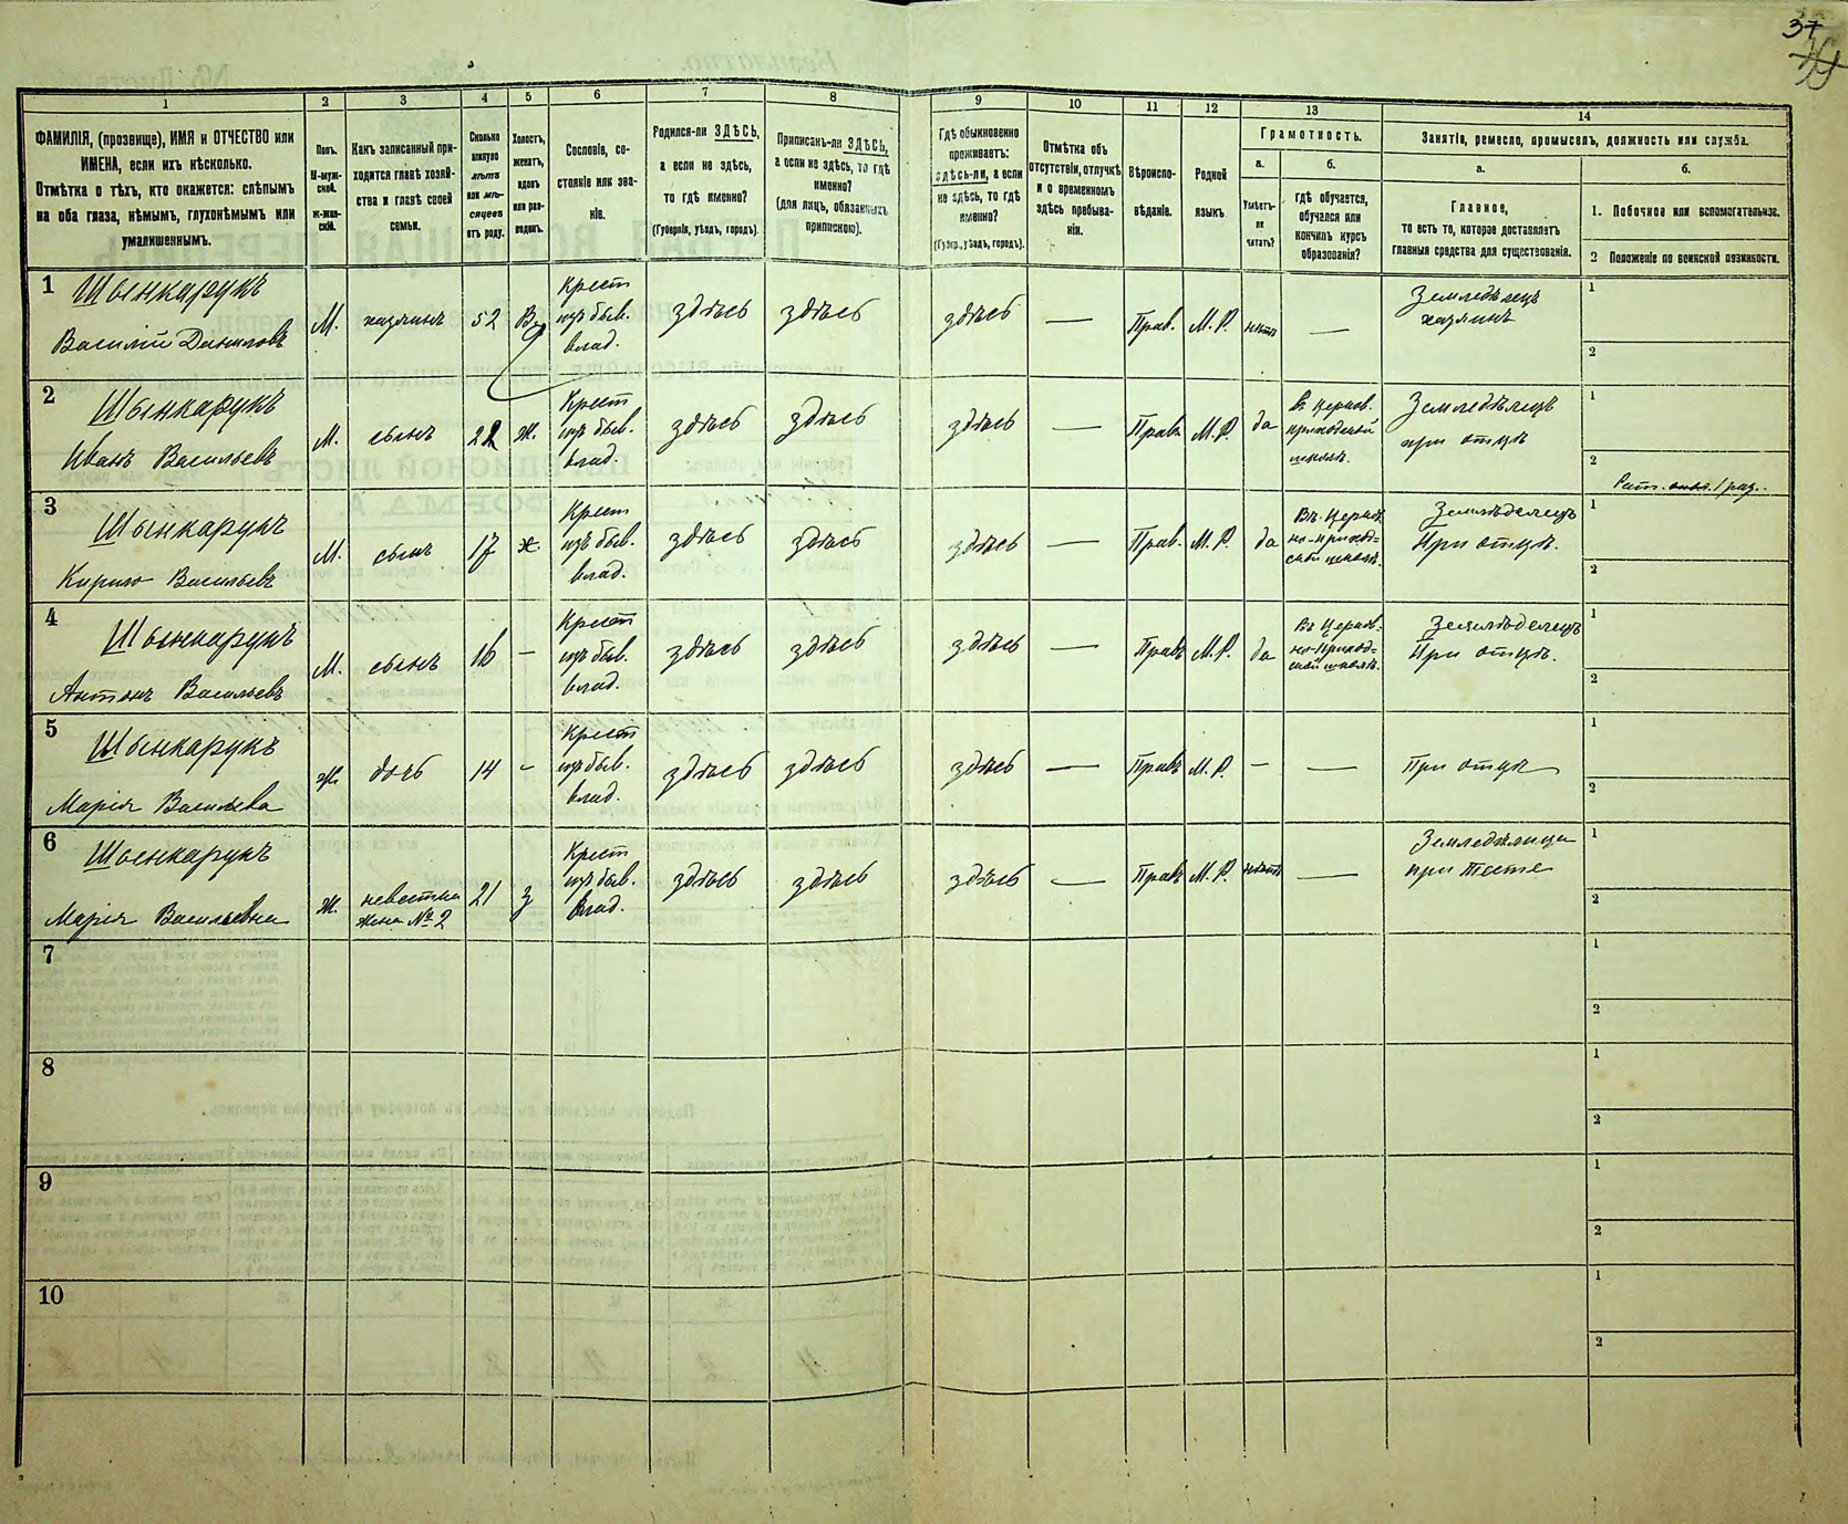 37
1 2 3 4 5 6 7 8 9 10 11 12 13 14
ФАМИЛІЯ, (прозвище), ИМЯ и ОТЧЕСТВО или
ИМЕНА, если ихъ нѣсколько.
Отмѣтка о тѣхъ, кто окажется: слѣпымъ
на оба глаза, нѣмымъ, глухонѣмымъ или
умалишеннымъ.
Полъ.
М-муж-
ской.
ж-жен-
скій.
Какъ записанный при-
ходится главѣ хозяй-
ства и главѣ своей
семьи.
Сколько
минуло
лѣтъ
или мѣ-
сяцевъ
отъ роду.
Холостъ,
женатъ,
вдовъ
или раз-
веденъ.
Сословіе, со-
стояніе или зва-
ніе.
Родился-ли ЗДѢСЬ,
а если не здѣсь,
то гдѣ именно?
(Губернія, уѣздъ, городъ).
Приписанъ-ли ЗДѢСЬ,
а если не здѣсь, то гдѣ
именно?
(для лицъ, обязанныхъ
припискою).
Гдѣ обыкновенно
проживаетъ:
здѣсь-ли, а если
не здѣсь, то гдѣ
именно?
(Губер., уѣздъ, городъ).
Отмѣтка объ
отсутствіи, отлучкѣ
и о временномъ
здѣсь пребыва-
ніи.
Вѣроиспо-
вѣданіе.
Родной
языкъ.
Грамотность.
а.
Умѣетъ-
ли
читать?
б.
Гдѣ обучается,
обучался или
кончилъ курсъ
образованія?
Занятіе, ремесло, промыселъ, должность или служба.
а.
Главное,
то есть то, которое доставляетъ
главныя средства для существованія.
б.
1. Побочное или вспомогательное.
2 Положеніе по воинской повинности.
1 Шынкарукъ
Василій Даниловъ
М.
хазяинъ
52
В.
Крест
изъ быв.
влад.
здѣсь
здѣсь
здѣсь
—
Прав.
М. Р.
нѣтъ
—
Земледѣлецъ
хазяинъ
1
2
2 Шынкарукъ
Иванъ Васильевъ
М.
сынъ
22
Ж.
Крест
изъ быв.
влад.
здѣсь
здѣсь
здѣсь
—
Прав
М. Р.
да
въ Церков.
приходской
школѣ.
Земледѣлецъ
при отцѣ
1
2
Рат. 1 раз.
3 Шынкарукъ
Кирило Васильевъ
М.
сынъ
17
х.
Крест
изъ быв.
влад.
здѣсь
здѣсь
здѣсь
—
Прав.
М. Р.
да
Въ Церков
но-приход=
ской школѣ.
Земляѣделецъ
При отцѣ.
1
2
4 Шынкарукъ
Антонъ Васильевъ
М.
сынъ
16
—
Крест
изъ быв.
влад.
здѣсь
здѣсь
здѣсь
—
Прав
М. Р.
да
Въ Церков-
но-приход=
ской школѣ.
Земляѣделецъ
При отцѣ.
1
2
5 Шынкарукъ
Марія Васильева
Ж
дочь
14
-
Крест
изъ быв.
влад.
здѣсь
здѣсь
здѣсь
—
Прав
М. Р.
—
—
При отцѣ
1
2
6 Шынкарукъ
Марія Васильевна
Ж.
невестка
жена № 2
21
з
Крест
изъ быв.
влад.
здѣсь
здѣсь
здѣсь
—
Прав
М. Р.
нѣтъ
—
Земледѣлица
при Тесте
1
2
7
1
2
8
1
2
9
1
2
10
1
2